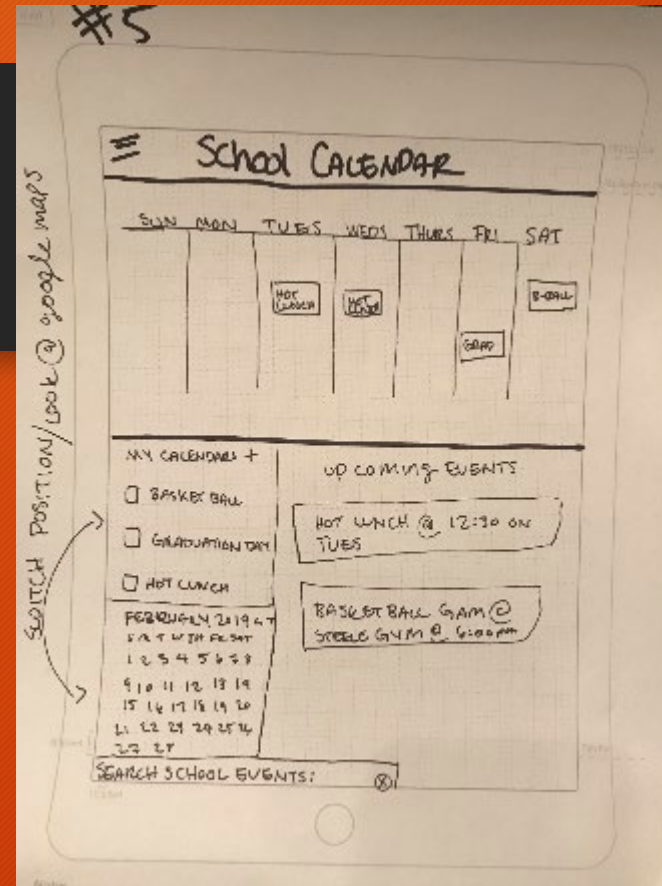 #5
SWITCH POSITION/LOOK @ google maps
School CALENDAR
SUN MON TUES WEDS THURS FRI SAT
HOT
LUNCH
HOT
LUNCH
B-BALL
GRAD
MY CALENDARS +
BASKET BALL
GRADUATION DAY
HOT LUNCH
FEBRUARY 2019 < >
S M T W TH FR SAT
1 2 3 4 5 6 7 8
9 10 11 12 13 14
15 16 17 18 19 20
21 22 23 24 25 26
27 28
UPCOMING EVENTS
HOT LUNCH @ 12:30 ON
TUES
BASKETBALL GAM @
STEELE GYM @ 6:00PM
SEARCH SCHOOL EVENTS: X